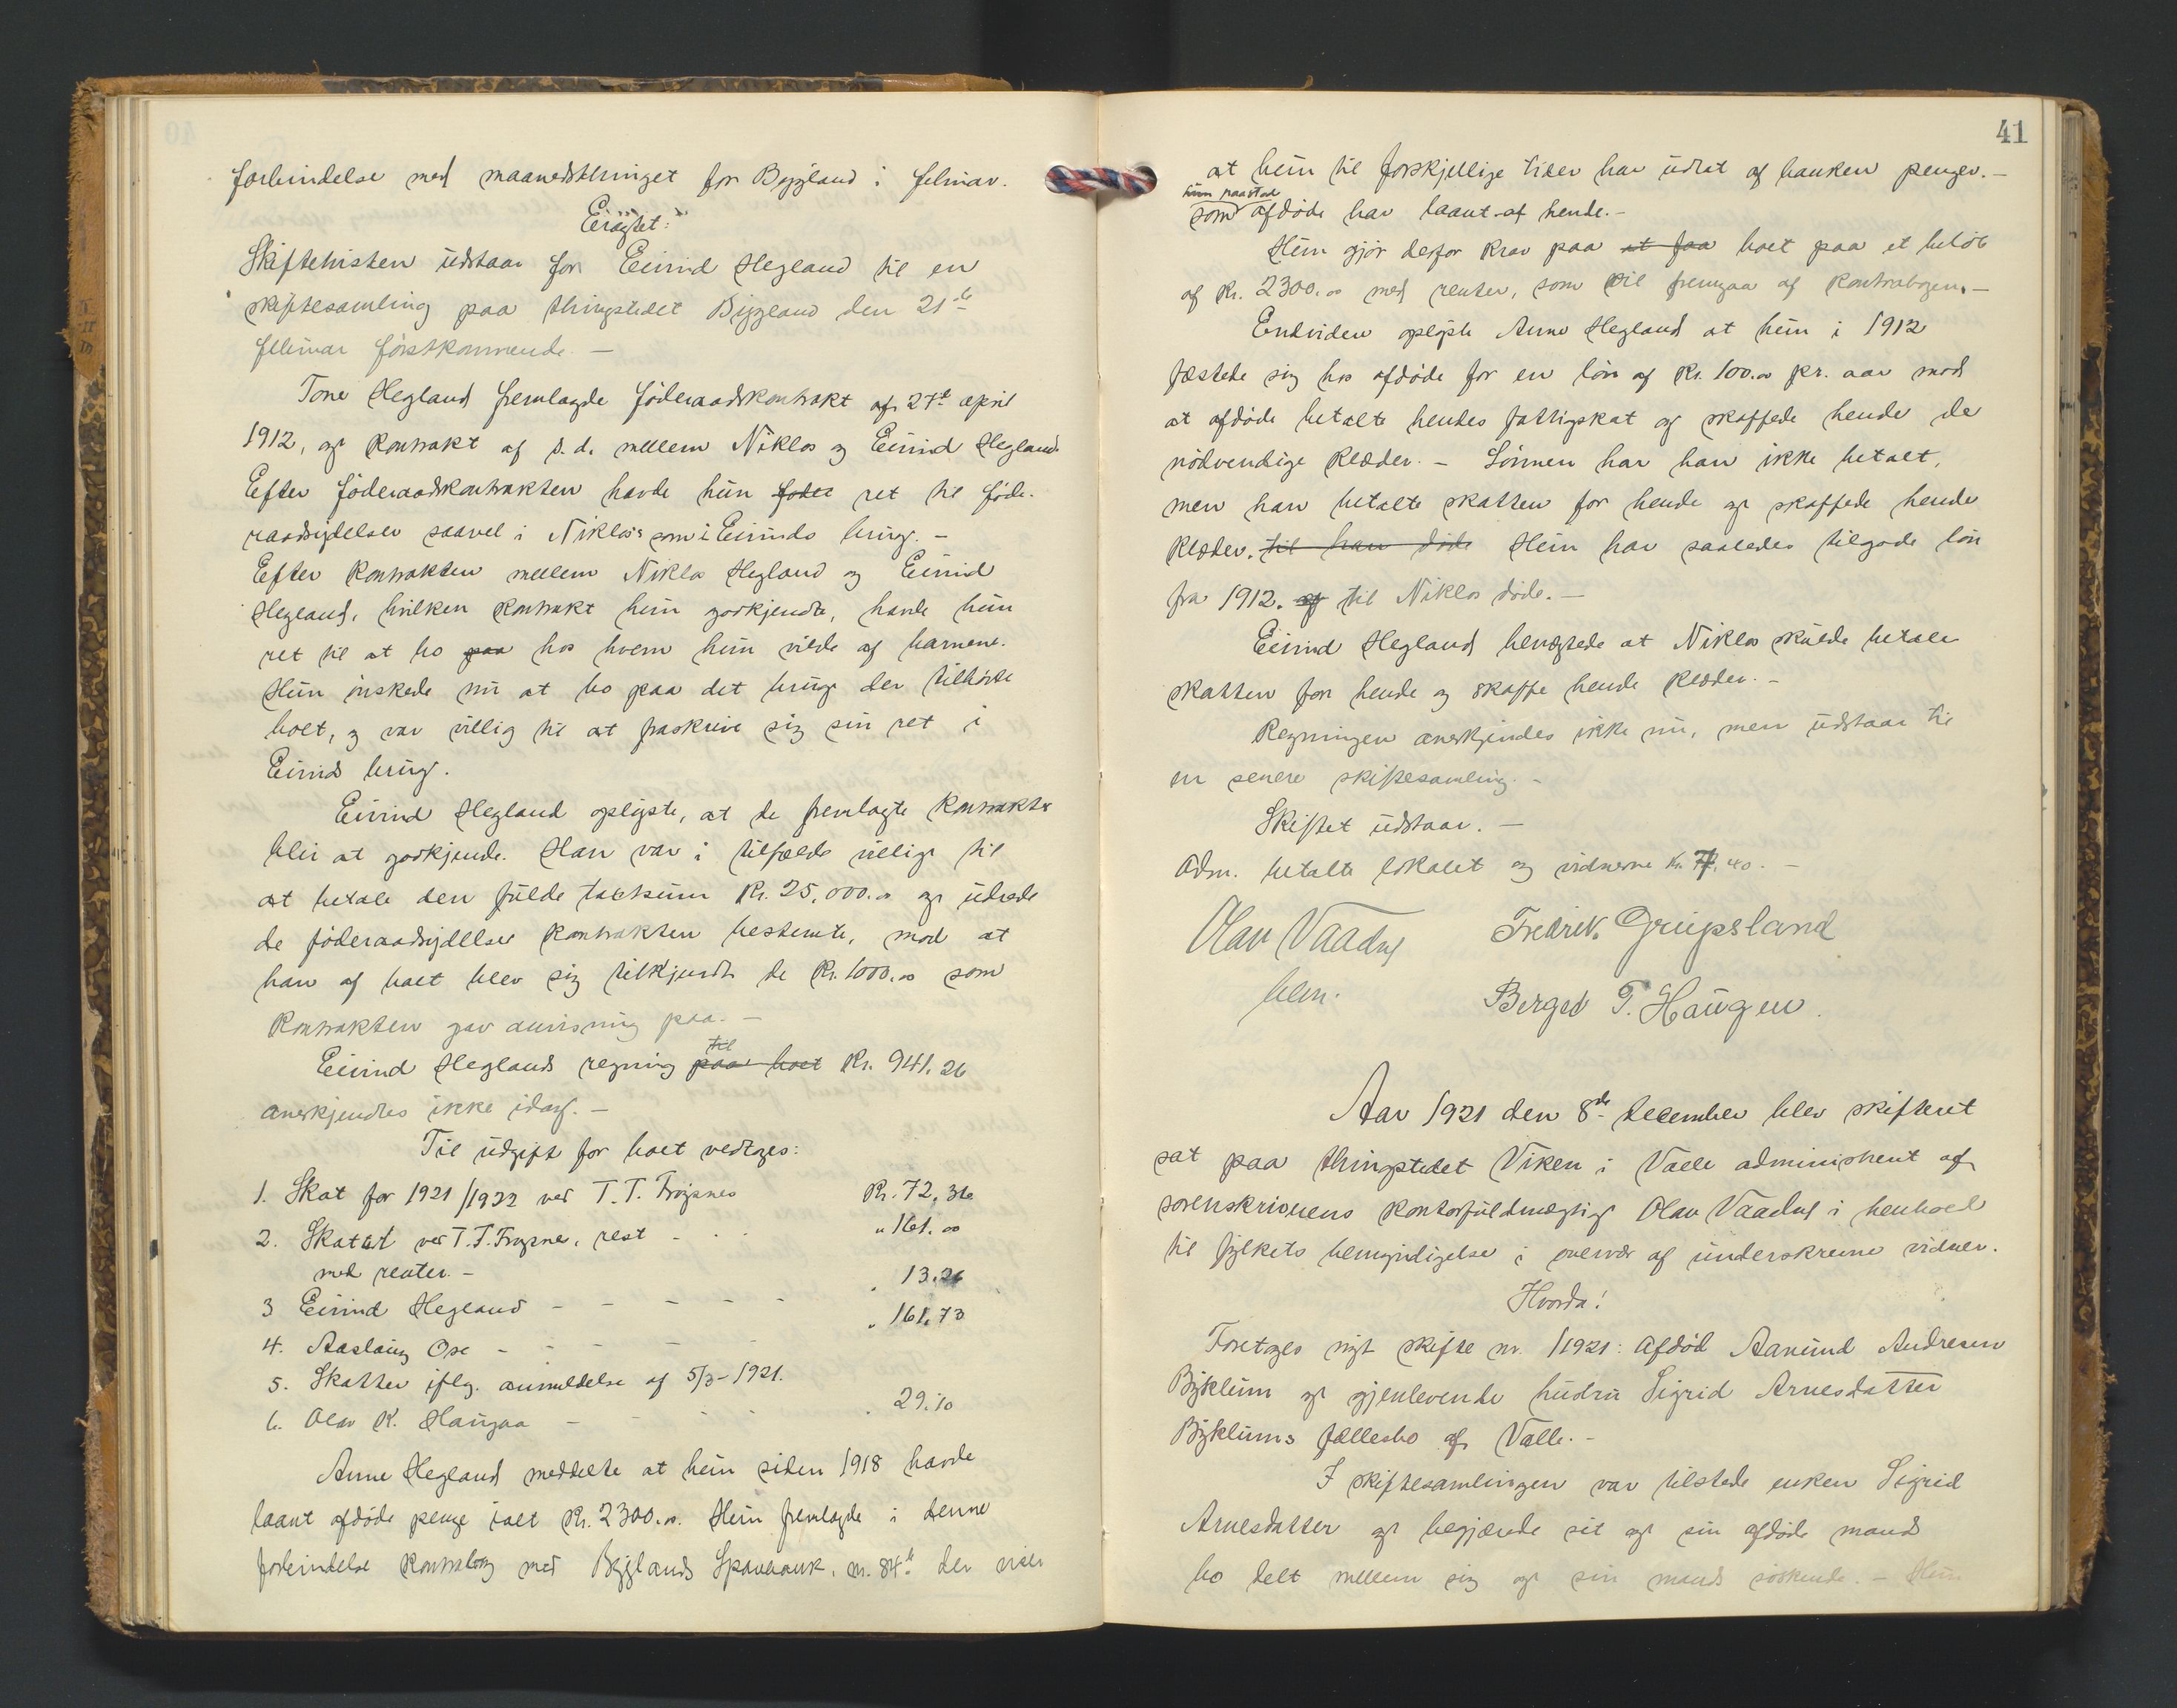 forbindelse med maanedsthinget for Bygland i februar.
Eragtet:
Skiftetvisten udstaar for Eivind Hegland til en
skiftesamling paa thingstedet Bygland den 21de
februar förstkommende. —
Tone Hegland fremlagde föderaadskontrakt af 27de april
1912, og kontrakt af s. d. mellem Niklos og Eivind Hegland.
Efter föderaadskontrakten havde hun foder ret til föde-
raadsydelser saavel i Niklos's som i Eivinds brug. —
Efter kontrakten mellem Niklos Hegland og Eivind
Hegland, hvilken kontrakt hun godkjendte, havde hun
ret til at bo paa hos hvem hun vilde af barnene.
Hun önskede nu at bo paa det brug der tilhörte
boet, og var villig til at fraskrive sig sin ret i
Eivinds brug.
Eivind Hegland oplyste, at de fremlagte kontrakter
blir at godkjende. Han var i tilfælde villig til
at betale den fulde taksum Kr. 25,000.00 og udrede
de föderaadsydelser kontrakten bestemte, mod at
han af boet blev sig tilkjendt de Kr. 1000.00 som
kontrakten gav anvisning paa. —
Eivind Heglands regning paa boet til Kr. 941.26
anerkjendtes ikke idag. —
Til udgift for boet vedtoges:
1. Skat for 1921/1922 ved T. T. Frøysnes Kr. 72,36
2. Skatter ved T. T. Frøysnes, rest - - - " 161.00
med renter. — " 13.26
3 Eivind Hegland - - - - - " 161.73
4. Aaslaug Ose - - - -
5. Skatter iflg. anmeldelse af 5/3 - 1921.
6. Olav K. Haugaa - - - - " 29.10
Anne Hegland meddelte at hun siden 1918 havde
laant afdöde penge ialt Kr. 2300.00. Hun fremlagde i denne
forbindelse kontrabog med Byglands Sparebank, nr. 84 der viser
41
at hun til forskjellige tider har udtat af banken penger. —
hun paastod
som afdöde har laant af hende. —
Hun gjör derfor krav paa at faa boet paa et belöb
af Kr. 2300.00 med renter, som vil fremgaa af kontrabogen. —
Endvidere oplyste Anne Hegland at hun i 1912
fæstede sig hos afdöde for en lön af Kr. 100.00 pr. aar mod
at afdöde betalte hendes fattigskat og skaffede hende de
nödvendige klæder. — Lönnen har han ikke betalt,
men han betalte skatten for hende og skaffede hende
klæder. til han döde Hun har saaledes tilgode lön
fra 1912. og til Niklos döde. —
Eivind Hegland benægtede at Niklos skulde betale
skatten for hende og skaffe hende klæder. —
Regningen anerkjendes ikke nu, men udstaar til
en senere skiftesamling. —
Skiftet udstaar. —
Adm. betalte lokalet og vidnerne Kr. 7.40. —
Olav Vaadny Fredrik Greipsland
bem. Berget T. Haugen.
Aar 1921 den 8de december blev skifteret
sat paa thingstedet Viken i Valle administrert af
sorenskriverens kontorfuldmægtig Olav Vaadny i henhold
til fylkets bemyndigelse i overvær af underskrevne vidner.
Hvorda!
Foretoges nyt skifte nr. /1921: Afdöd Aanund Andresen
Byklum og gjenlevende hustru Sigrid Arnesdatter
Byklums fællesbo af Valle. —
I skiftesamlingen var tilstede enken Sigrid
Arnesdatter og begjærede sit og sin afdöde mands
bo delt mellem sig og sin mands söskende. — Hun